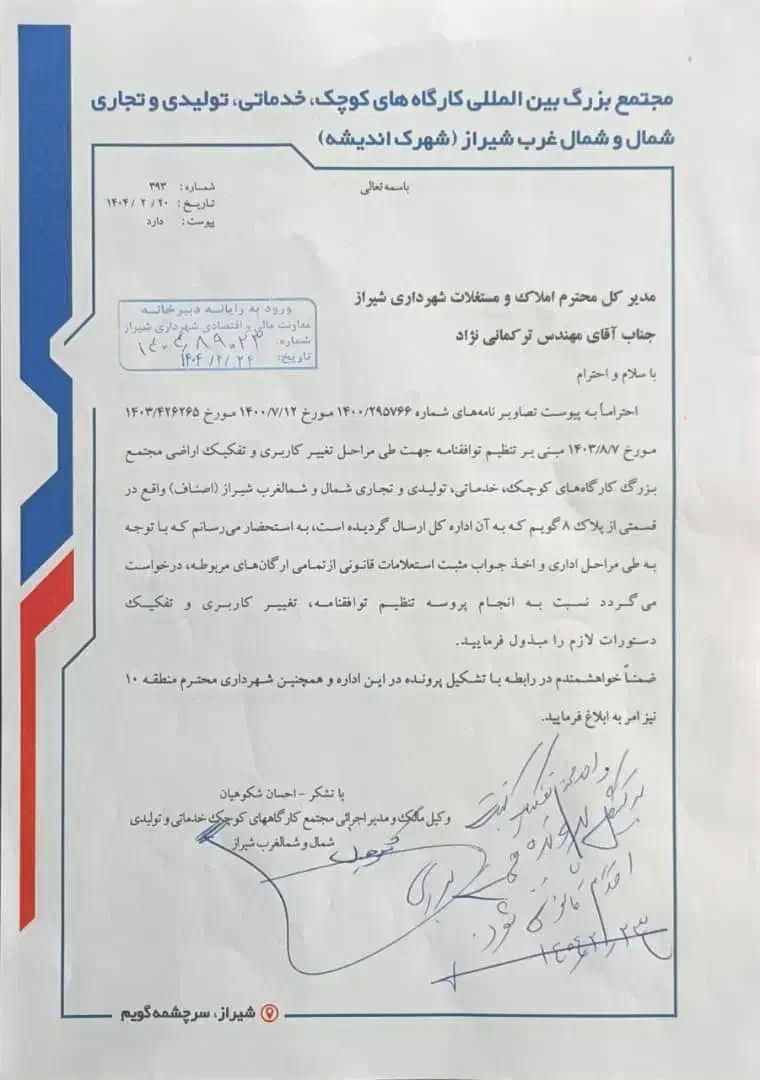 مجتمع بزرگ بین المللی کارگاه های کوچک، خدماتی، تولیدی و تجاری
شمال و شمال غرب شیراز (شهرک اندیشه)
باسمه تعالی
شماره: ۳۹۳
تاریخ: ۱۴۰۴/۲/۲۰
پیوست: دارد
مدیر کل محترم املاک و مستغلات شهرداری شیراز
جناب آقای مهندس ترکمانی نژاد
با سلام و احترام
ورود به رایانه دبیرخانه
معاونت مالی و اقتصادی شهرداری شیراز
شماره:
تاریخ: ۱۴۰۴/۲/۲۴
احتراماً به پیوست تصاویر نامه‌های شماره ۱۴۰۰/۲۹۵۷۶۶ مورخ ۱۴۰۰/۷/۱۲ مورخ ۱۴۰۳/۴۲۶۲۶۵
مورخ ۱۴۰۳/۸/۷ مبنی بر تنظیم توافقنامه جهت طی مراحل تغییر کاربری و تفکیک اراضی مجتمع
بزرگ کارگاه‌های کوچک، خدماتی، تولیدی و تجاری شمال و شمالغرب شیراز (اصناف) واقع در
قسمتی از پلاک ۸ گویم که به آن اداره کل ارسال گردیده است، به استحضار می‌رسانم که با توجه
به طی مراحل اداری و اخذ جواب مثبت استعلامات قانونی از تمامی ارگان‌های مربوطه، درخواست
می گردد نسبت به انجام پروسه تنظیم توافقنامه، تغییر کاربری و تفکیک
دستورات لازم را مبذول فرمایید.
ضمناً خواهشمندم در رابطه با تشکیل پرونده در این اداره و همچنین شهرداری محترم منطقه ۱۰
نیز امر به ابلاغ فرمایید.
با تشکر - احسان شکوهیان
وکیل مالک و مدیر اجرائی مجتمع کارگاههای کوچک خدماتی و تولیدی
شمال و شمالغرب شیراز
اقدام قانونی شود.
۱۴۰۴/۲/۲۳
شیراز، سرچشمه گویم